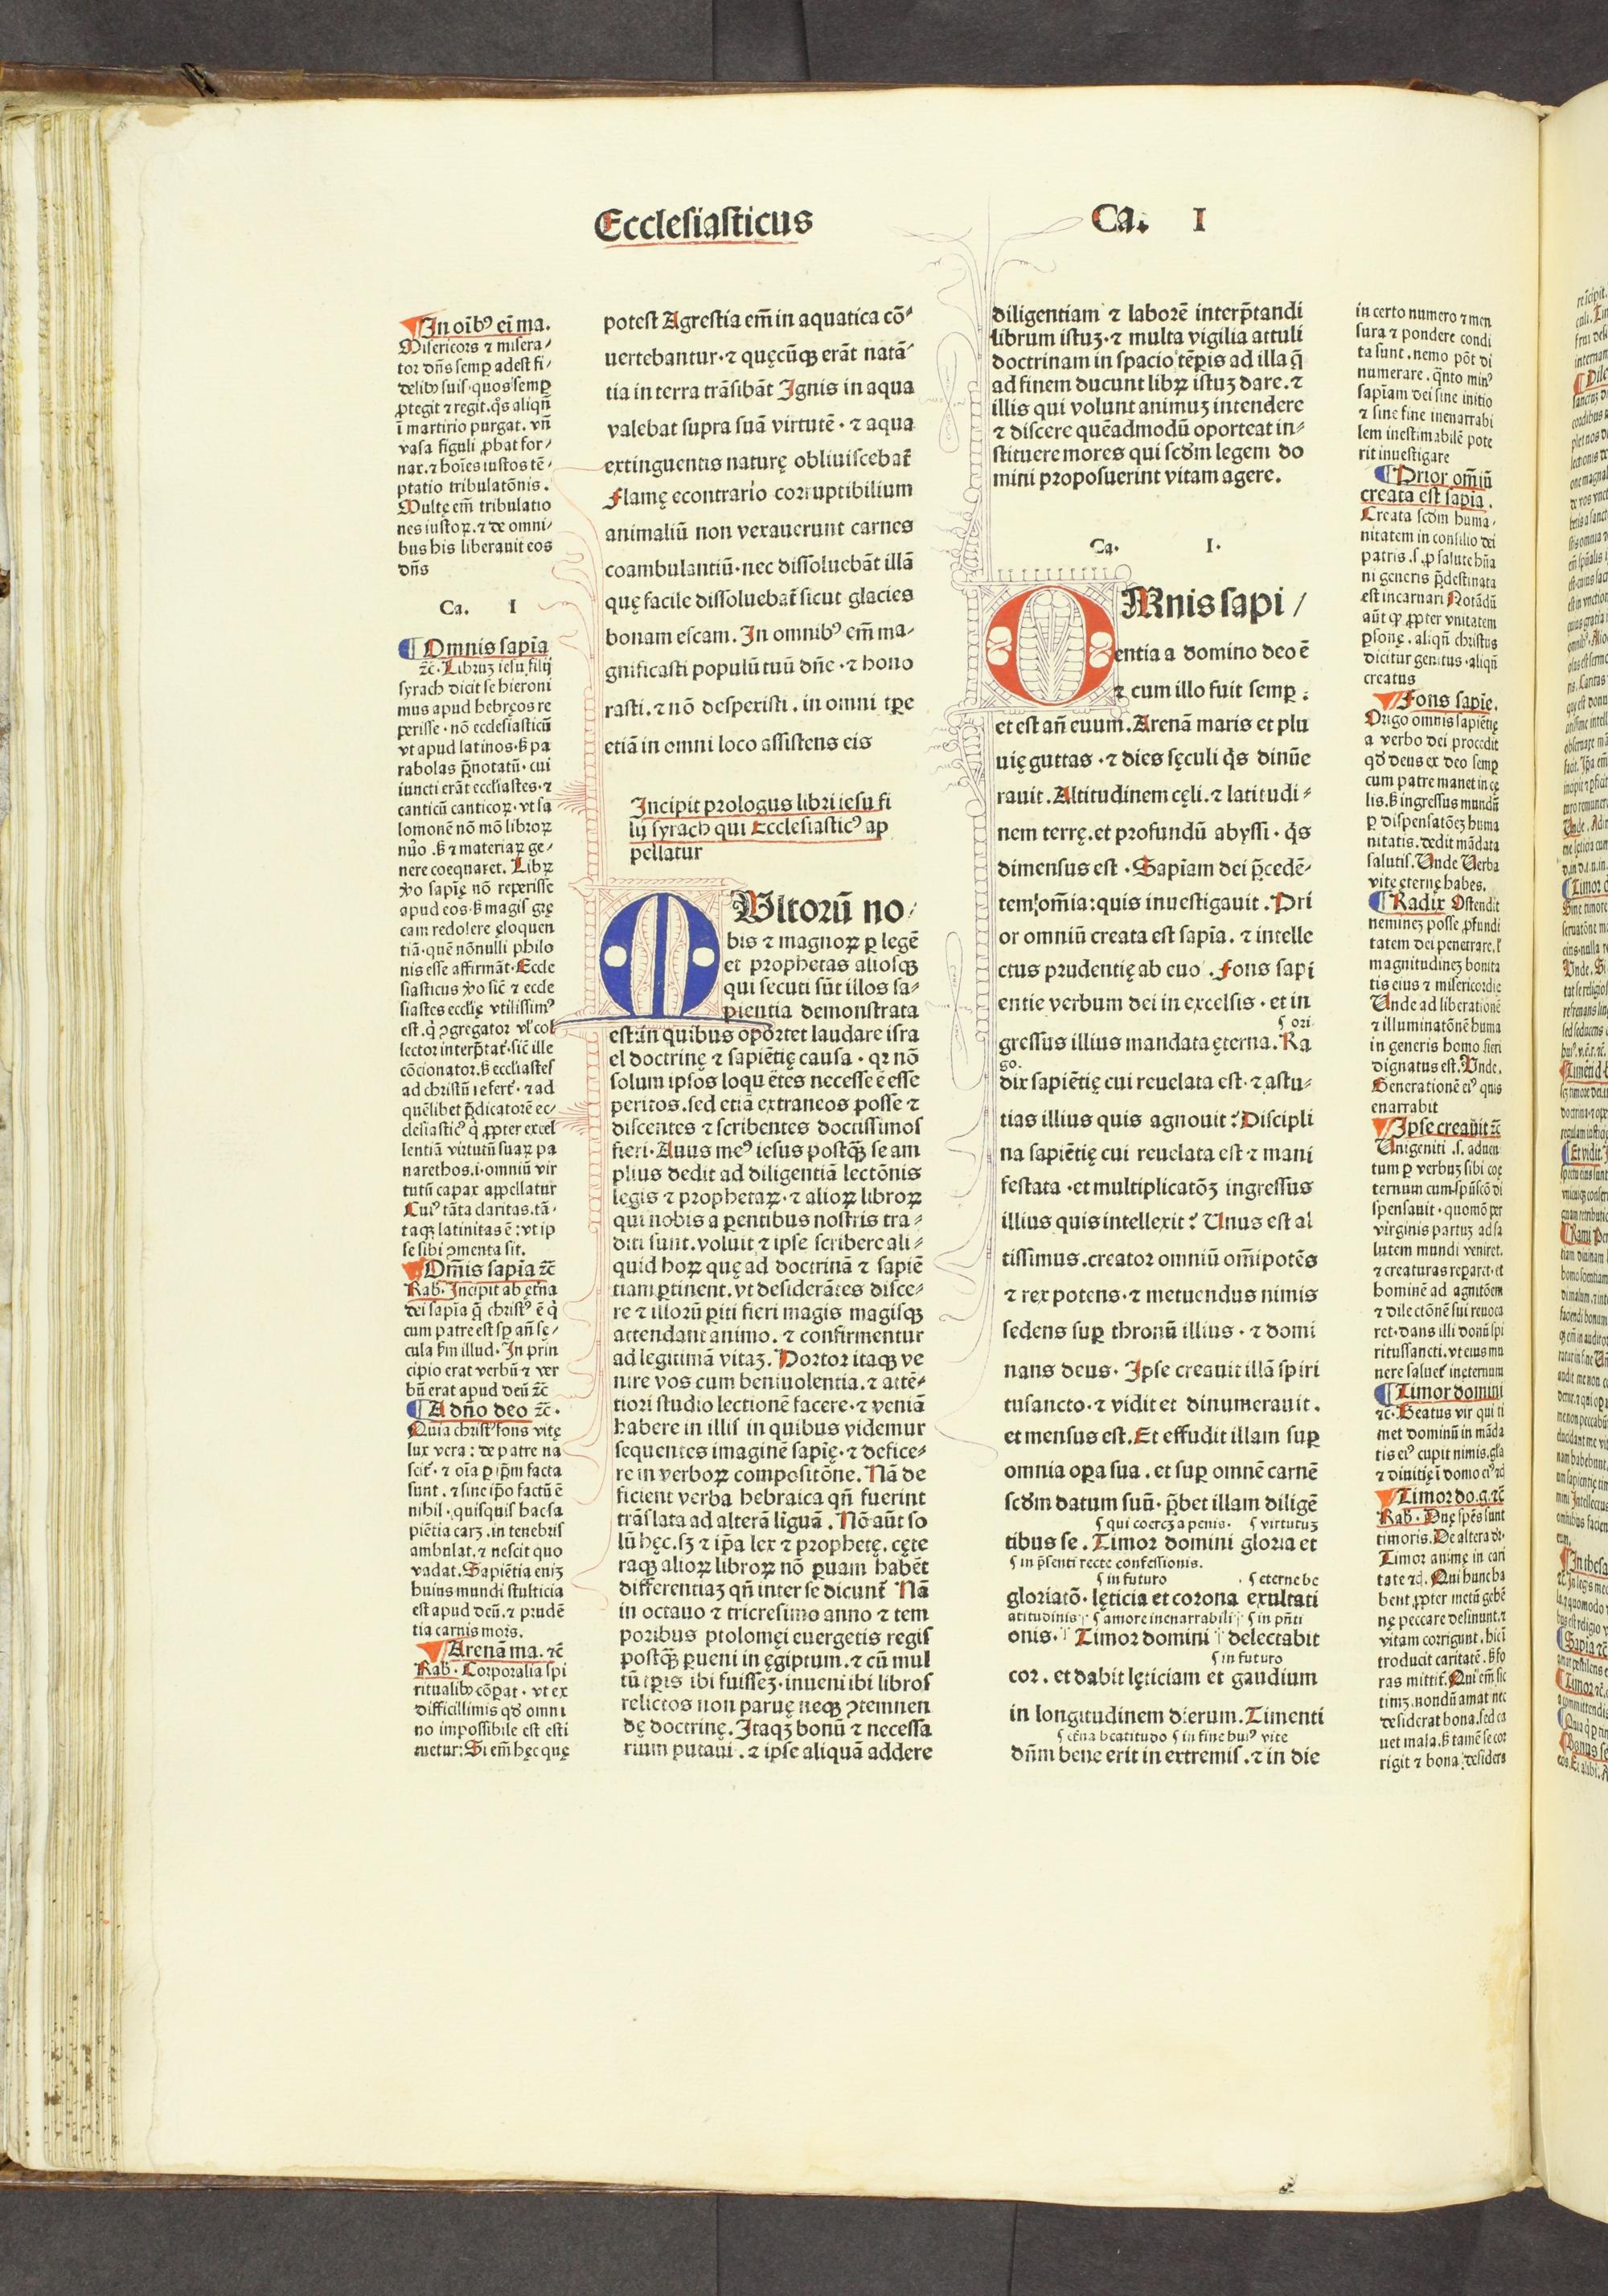 Ecclesiasticus
Ca. I
In oib⁹ ei ma.
Misericors ⁊ misera⸗
tor dn̄s semꝑ adest fi⸗
delib⁹ suis. quos semꝑ
ꝓtegit ⁊ regit. q̊s aliqn̄
ī martirio purgat. vn̄
vasa figuli ꝓbat for⸗
nax. ⁊ hoīes iustos tē⸗
ptatio tribulatōnis.
Multę em̄ tribulatio
nes iustoꝝ. ⁊ de omni⸗
bus his liberauit eos
dn̄s
Ca. I
Omnis sapīa
⁊c̄. Libruꝫ iesu filij
syrach dicit se hieroni
mus apud hebręos re
perisse. nō ecclesiasticū
vt apud latinos. ꝫ pa
rabolas p̄notatū. cui
iuncti erāt eccl̄iastes. ⁊
canticū canticoꝝ. vt sa
lomonē nō mō libroꝝ
nūo. ꝫ ⁊ materiaꝝ ge⸗
nere coequaret. Libꝝ
ꝟo sapīę nō reperisse
apud eos. ꝫ magis gre
cam redolere eloquen
tiā. quē nōnulli philo
nis esse affirmāt. Eccle
siasticus ꝟo sic̄ ⁊ eccle
siastes eccl̄ię vtilissim⁹
est. q̇ ꝯgregator vl̓ col
lector interp̄tat̄. sic̄ ille
cōcionator. ꝫ eccl̄iastes
ad christū refert̄. ⁊ ad
quēlibet p̄dicatorē ec⸗
clesiastic⁹ q̇ ꝓpter excel
lentiā virtutū suaꝝ pa
narethos. i. omniū vir
tutū capax appellatur
Cui⁹ tāta claritas. tā⸗
taqꝫ latinitas ē: vt ip
se sibi ꝯmenta sit.
Om̄is sapia ⁊c̄
Rab̄. Incipit ab ęt̄na
dei sapīa q̄ christ⁹ ē q̇
cum patre est sꝑ an̄ sę⸗
cula ẜm illud. In prin
cipio erat verbū ⁊ ver
bū erat apud deū ⁊c̄
A dn̄o deo ⁊c̄.
Quia christ⁹ fons vitę
lux vera: de patre na
scit̄. ⁊ oīa ꝑ ip̄m facta
sunt. ⁊ sine ip̄o factū ē
nihil. quisquis hac sa
piētia carꝫ. in tenebris
ambulat. ⁊ nescit quo
vadat. Sapiētia eniꝫ
huius mundi stulticia
est apud deū. ⁊ prudē
tia carnis mors.
Arenā ma. ⁊c̄
Rab̄. Corporalia spi
ritualib⁹ cōꝑat. vt ex
difficillimis qd̓ omni
no impossibile est esti
metur: Si em̄ hęc quę
potest Agrestia em̄ in aquatica cō⸗
uertebantur. ⁊ quęcūqꝫ erāt natā⸗
tia in terra trāsibāt Ignis in aqua
valebat supra suā virtutē. ⁊ aqua
extinguentis naturę obliuiscebat̄
Flamę econtrario corruptibilium
animaliū non vexauerunt carnes
coambulantiū. nec dissoluebāt illā
quę facile dissoluebat̄ sicut glacies
bonam escam. In omnib⁹ em̄ ma⸗
gnificasti populū tuū dn̄e. ⁊ hono
rasti. ⁊ nō despexisti. in omni tꝑe
etiā in omni loco assistens eis
Incipit prologus libri iesu fi
lij syrach qui Ecclesiastic⁹ ap
pellatur
MVltorū no⸗
bis ⁊ magnoꝝ ꝑ legē
et prophetas aliosqꝫ
qui secuti sūt illos sa⸗
pientia demonstrata
est: in quibus oportet laudare isra
el doctrinę ⁊ sapiētię causa. qꝛ nō
solum ipsos loquētes necesse ē esse
peritos. sed etiā extraneos posse ⁊
discentes ⁊ scribentes doctissimos
fieri. Auus me⁹ iesus postqꝫ̄ se am
plius dedit ad diligentiā lectōnis
legis ⁊ prophetaꝝ. ⁊ alioꝝ libroꝝ
qui nobis a ꝑentibus nostris tra⸗
diti sunt. voluit ⁊ ipse scribere ali⸗
quid hoꝝ quę ad doctrinā ⁊ sapiē
tiam ꝑtinent. vt desiderātes disce⸗
re ⁊ illorū ꝑiti fieri magis magisqꝫ
attendant animo. ⁊ confirmentur
ad legitimā vitaꝫ. Hortor itaqꝫ ve
nire vos cum beniuolentia. ⁊ attē⸗
tiori studio lectionē facere. ⁊ veniā
habere in illis in quibus videmur
sequentes imaginē sapię. ⁊ defice⸗
re in verboꝝ compositōne. Nā de
ficient verba hebraica qn̄ fuerint
trāslata ad alterā liguā. Nō aūt so
lū hęc. sꝫ ⁊ ip̄a lex ⁊ prophetę. cęte
raqꝫ alioꝝ libroꝝ nō ꝑuam habēt
differentiaꝫ qn̄ inter se dicunt̄ Nā
in octauo ⁊ tricesimo anno ⁊ tem
poribus ptolomęi euergetis regis
postqꝫ̄ ꝑueni in ęgiptum. ⁊ cū mul
tū tꝑis ibi fuisseꝫ. inueni ibi libros
relictos non paruę neqꝫ ꝯtemnen
dę doctrinę. Itaqꝫ bonū ⁊ necessa
rium putaui. ⁊ ipse aliquā addere
diligentiam ⁊ laborē interp̄tandi
librum istuꝫ. ⁊ multa vigilia attuli
doctrinam in spacio tꝑis ad illa q̄
ad finem ducunt libꝝ istuꝫ dare. ⁊
illis qui volunt animuꝫ intendere
⁊ discere quēadmodū oporteat in⸗
stituere mores qui scd̓m legem do
mini proposuerint vitam agere.
Ca. I.
OMnis sapi⸗
entia a domino deo ē
⁊ cum illo fuit semꝑ:
et est an̄ euum. Arenā maris et plu
uię guttas. ⁊ dies sęculi q̊s dinūe
rauit. Altitudinem cęli. ⁊ latitudi⸗
nem terrę. et profundū abyssi. q̊s
dimensus est. Sapīam dei p̄cedē⸗
tem om̄ia: quis inuestigauit. Pri
or omniū creata est sapīa. ⁊ intelle
ctus prudentię ab euo. Fons sapi
entie verbum dei in excelsis. et in
ori
gressus illius mandata ęterna. Ra
go.
dix sapiētię cui reuelata est. ⁊ astu⸗
tias illius quis agnouit: Discipli
na sapiētię cui reuelata est ⁊ mani
festata. et multiplicatōꝫ ingressus
illius quis intellexit: Unus est al
tissimus. creator omniū om̄ipotēs
⁊ rex potens. ⁊ metuendus nimis
sedens suꝑ thronū illius. ⁊ domi
nans deus. Ipse creauit illā spiri
tusancto. ⁊ vidit et dinumerauit.
et mensus est. Et effudit illam suꝑ
omnia oꝑa sua. et suꝑ omnē carnē
scd̓m datum suū. p̄bet illam diligē
qui coercꝫ a penis. virtutuꝫ
tibus se. Timor domini gloria et
in p̄senti recte confessionis.
in futuro eterne be
gloriatō. lęticia et corona exultati
atitudinis amore inenarrabili in pn̄ti
onis. Timor domini delectabit
in futuro
cor. et dabit lęticiam et gaudium
in longitudinem dierum. Timenti
et̄na beatitudo in fine hui⁹ vite
dn̄m bene erit in extremis. ⁊ in die
in certo numero ⁊ men
sura ⁊ pondere condi
ta sunt. nemo pōt di
numerare. q̄nto min⁹
sapīam dei sine initio
⁊ sine fine inenarrabi
lem inestimabilē pote
rit inuestigare
Prior om̄iū
creata est sapīa.
Creata scd̓m huma⸗
nitatem in consilio dei
patris. s. ꝓ salute hūa
ni generis p̄destinata
est incarnari Notādū
aūt qꝫ ꝓpter vnitatem
ꝑsonę. aliqn̄ christus
dicitur genitus. aliqn̄
creatus
Fons sapię.
Origo omnis sapiētię
a verbo dei procedit
qd̓ deus ex deo semꝑ
cum patre manet in cę
lis. ꝫ ingressus mundū
ꝑ dispensatōeꝫ huma
nitatis. dedit mādata
salutis. Unde Uerba
vite ęternę habes.
Radix Ostendit
nemineꝫ posse ꝓfundi
tatem dei penetrare. l̓
magnitudineꝫ bonita
tis eius ⁊ misericordię
Unde ad liberationē
⁊ illuminatōnē huma
in generis homo fieri
dignatus est. Unde.
Generationē ei⁹ quis
enarrabit
Ipse creauit ⁊c̄
Unigeniti .s. aduen
tum ꝑ verbuꝫ sibi coę
ternum cum spūscō di
spensauit. quomō per
virginis partuꝫ ad sa
lutem mundi veniret.
⁊ creaturas reꝑaret. et
hominē ad agnitōem
⁊ dilectōnē sui reuoca
ret. dans illi donū spi
ritussancti. vt eius mu
nere saluet̄ in ęternum
Timor domini
⁊c. Beatus vir qui ti
met dominū in māda
tis ei⁹ cupit nimis. gl̄a
⁊ diuitię ī domo ei⁹ ⁊c̄
Timor do. g. ⁊c̄
Rab̄. Duę spēs sunt
timoris. De altera dr̄.
Timor animę in cari
tate ⁊cͥ. Qui hunc ha
bent ꝓpter metū gehē
nę peccare desinunt. ⁊
vitam corrigunt. hic ī
troducit caritatē. ꝫ fo
ras mittit̄. Qui em̄ sic
timꝫ. nondū amat nec
desiderat bona. sed ca
uet mala. ꝫ tamē se cor
rigit ⁊ bona desidera